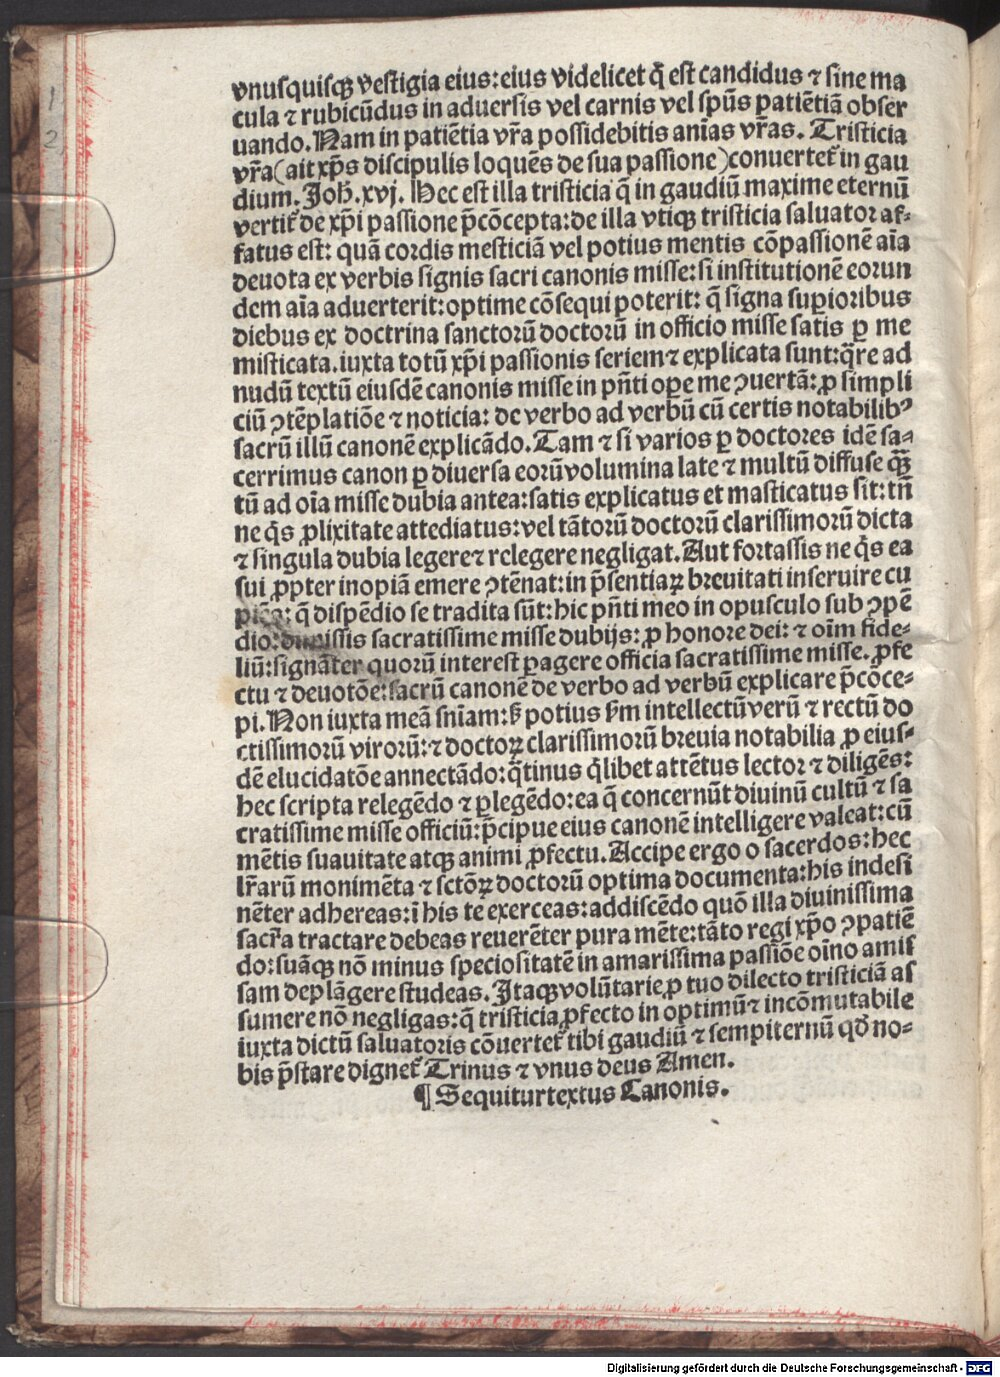 vnusquisqꝫ vestigia eius: eius videlicet q̄ est candidus ⁊ sine ma
cula ⁊ rubicūdus in aduersis vel carnis vel spūs patiētiā obser
uando. Nam in patiētia vr̄a possidebitis anīas vr̄as. Tristicia
vr̄a (ait xp̄s discipulis loquēs de sua passione) conuertet̄ in gau
dium. Joh̄. xvj. Hec est illa tristicia q̄ in gaudiū maxime eternū
vertit̄ de xp̄i passione p̄cōcepta: de illa vtiqꝫ tristicia saluator af-
fatus est: quā cordis mesticiā vel potius mentis cōpassionē aīa
deuota ex verbis signis sacri canonis misse: si institutionē eorun
dem aīa aduerterit: optime cōsequi poterit: q̄ signa suꝑioribus
diebus ex doctrina sanctorū doctorū in officio misse satis ꝑ me
misticata. iuxta totū xp̄i passionis seriem ⁊ explicata sunt: q̄re ad
nudū textū eiusdē canonis misse in pn̄ti oꝑe me ꝯuertā: ꝓ simpli
ciū ꝯtēplatiōe ⁊ noticia: de verbo ad verbū cū certis notabilibꝰ
sacrū illū canonē explicādo. Tam ⁊ si varios ꝑ doctores idē sa-
cerrimus canon ꝑ diuersa eorū volumina late ⁊ multū diffuse qꝫ̄
tū ad oīa misse dubia antea: satis explicatus et masticatus sit: tn̄
ne q̄s ꝓlixitate attediatus: vel tātorū doctorū clarissimorū dicta
⁊ singula dubia legere ⁊ relegere negligat. Aut fortassis ne q̄s ea
sui ꝓpter inopiā emere ꝯtēnat: in p̄sentiaꝝ breuitati inseruire cu
piēs: q̄ dispēdio se tradita sūt: hic pn̄ti meo in opusculo sub ꝯpē
dio: dimissis sacratissime misse dubijs: ꝓ honore dei: ⁊ oīm fide-
liū: signāter quorū interest ꝑagere officia sacratissime misse. ꝓfe
ctu ⁊ deuotōe: sacrū canonē de verbo ad verbū explicare p̄cōce-
pi. Non iuxta meā sn̄iam: ꝟ potius ẜm intellectū verū ⁊ rectū do
ctissimorū virorū: ⁊ doctoꝝ clarissimorū breuia notabilia ꝓ eius-
dē elucidatōe annectādo: q̄tinus q̄libet attētus lector ⁊ diligēs:
hec scripta relegēdo ⁊ ꝑlegēdo: ea q̄ concernūt diuinū cultū ⁊ sa
cratissime misse officiū: p̄cipue eius canonē intelligere valeat: cū
mētis suauitate atqꝫ animi ꝓfectu. Accipe ergo o sacerdos: hec
lr̄arū monimēta ⁊ sctōꝝ doctorū optima documenta: his indesi
nēter adhereas: ī his te exerceas: addiscēdo quō illa diuinissima
sacr̄a tractare debeas reuerēter pura mēte: tāto regi xp̄o ꝯpatiē
do: suāqꝫ nō minus speciositatē in amarissima passiōe oīno amis
sam deplāgere studeas. Itaqꝫ volūtarie ꝓ tuo dilecto tristiciā as
sumere nō negligas: q̄ tristicia ꝓfecto in optimū ⁊ incōmutabile
iuxta dictū saluatoris cōuertet̄ tibi gaudiū ⁊ sempiternū qd̄ no-
bis p̄stare dignet̄ Trinus ⁊ vnus deus Amen.
¶ Sequitur textus Canonis.
1
2
Digitalisierung gefördert durch die Deutsche Forschungsgemeinschaft - DFG